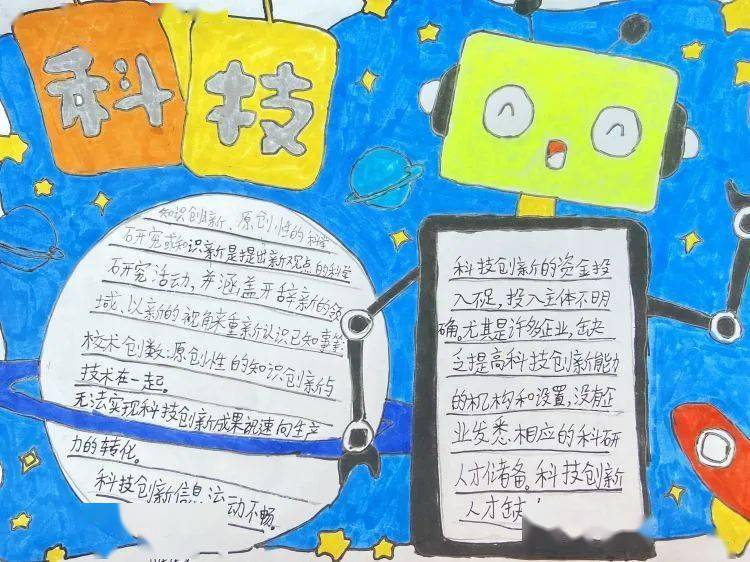 科技
知识创新、原创性的科学
研究或知识新是提出新观点的科学
研究活动,并涵盖开辞新的领
域、以新的视角来重新认识已知事等
校术创数:原创性的知识创新与
技术在一起。
无法实现科技创新成果讯速向生产
力的转化。
科技创新信息运动不畅。
科技创新的资金投
入不足,投入主体不明
确。尤其是许多企业,缺
乏提高科技创新能力
的机构和设置,没有企
业发悉相应的科研
人才储备。科技创新
人才缺